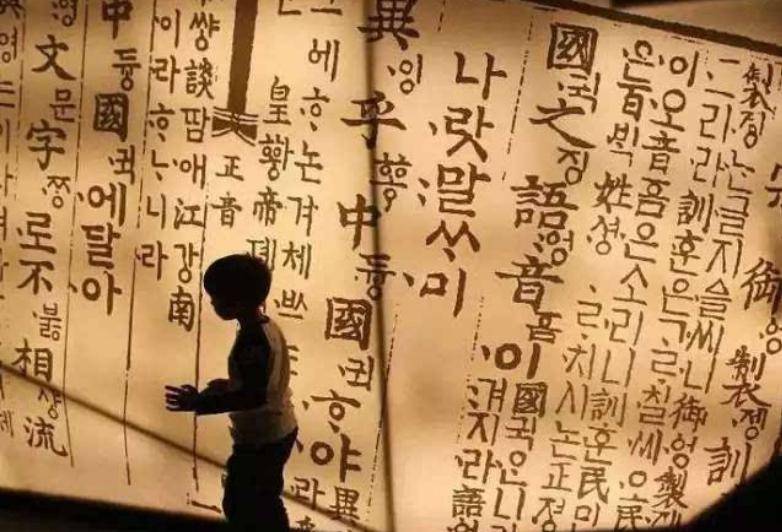 御ᅌᅥᆼ製졩訓
製졩ᄂᆞᆫ글지ᅀᅳᆯ씨니御ᅌᅥᆼ製
그리라訓훈은ᄀᆞᄅᆞ칠씨오民
이오音ᅙᅳᆷ은소리니訓훈民민
ᄋᆞᆫ百ᄇᆡᆨ姓셔ᇰᄀᆞᄅᆞ치시논正져ᇰ
國귁之징語ᅌᅥᆼ音ᅙᅳᆷ이國귁ᄋᆞᆫ나
겨지라語
나랏말ᄊᆞ미
異잉乎ᅘᅩᆼ中듀ᇰ國귁ᄒᆞ야異
에ᄒᆞ논겨체ᄡᅳ
皇황帝뎽
正音
談땀애江강南
이라ᄒᆞᄂᆞ니라
中듀ᇰ國귁에달아
文문字ᄍᆞᆼ로不부ᇙ相샤ᇰ流